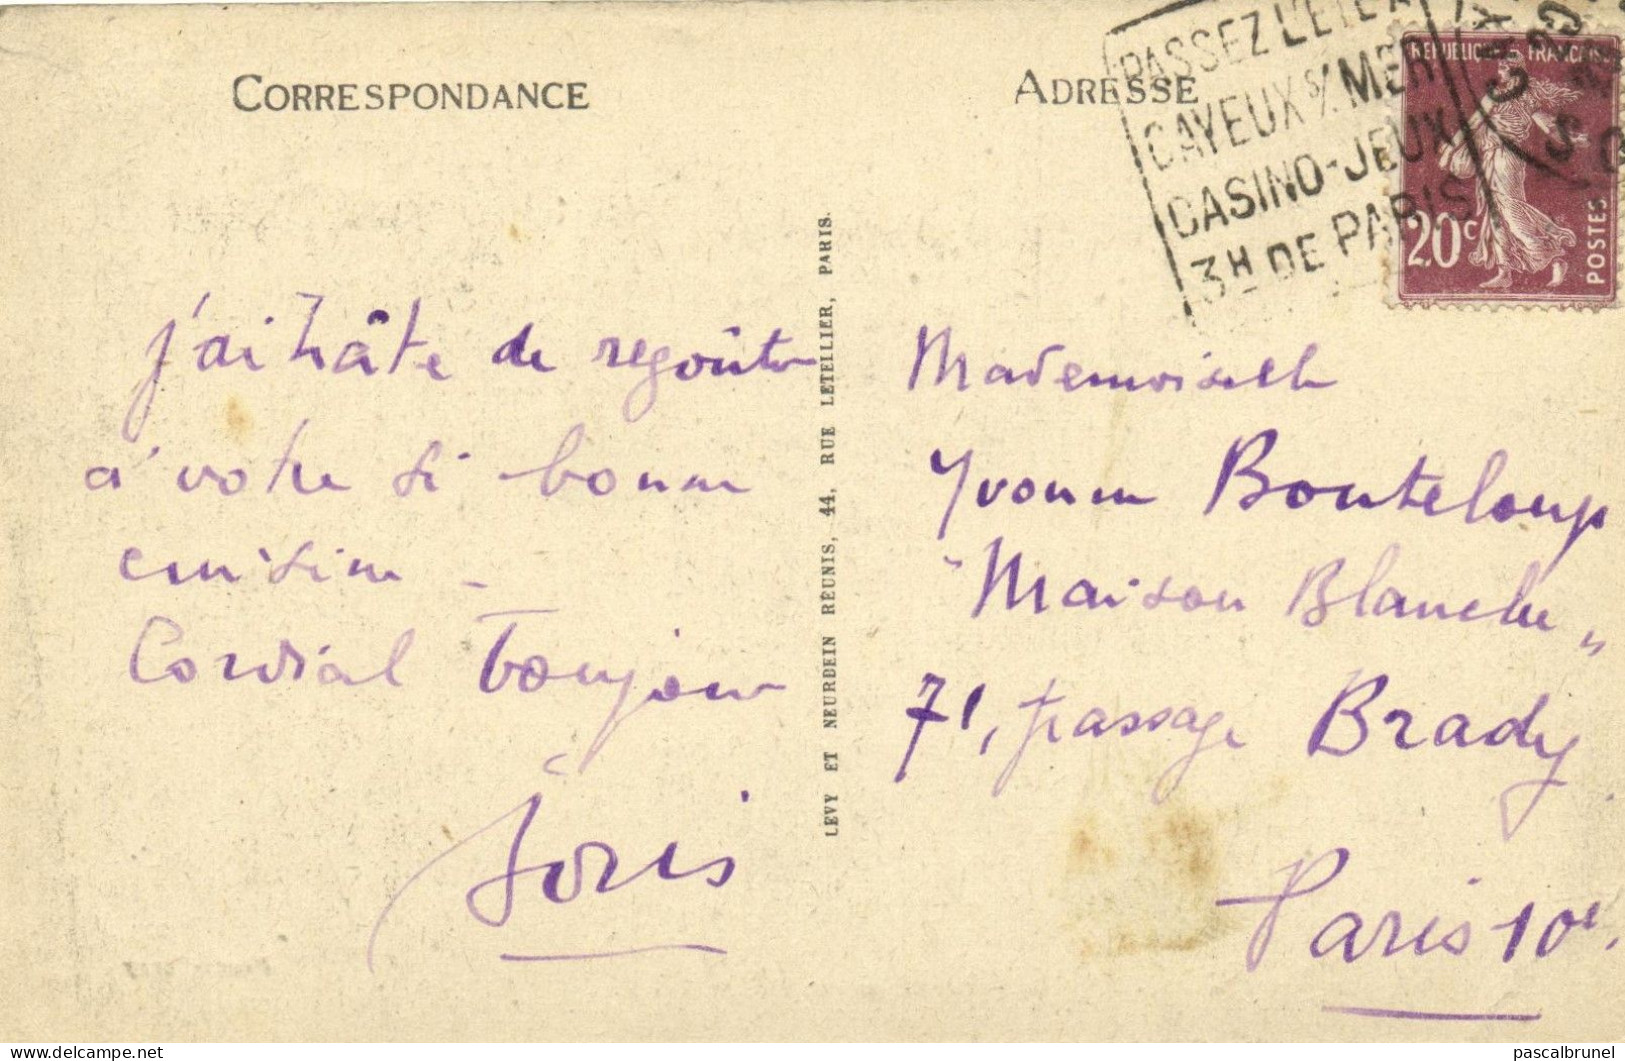 CORRESPONDANCE
j'ai hâte de regoûter
à votre si bonne
cuisine -
Cordial Toujours
Joris
LEVY ET NEURDEIN RÉUNIS, 44, RUE LETELLIER, PARIS.
ADRESSE
PASSEZ L'ÉTÉ A
CAYEUX S/ MER
CASINO-JEUX
3H DE PARIS
REPUBLIQUE FRANÇAISE
20c
POSTES
Mademoiselle
Yvonne Bouteloup
"Maison Blanche"
71, passage Brady
Paris 10e.
delcampe.net
pascalbrunel